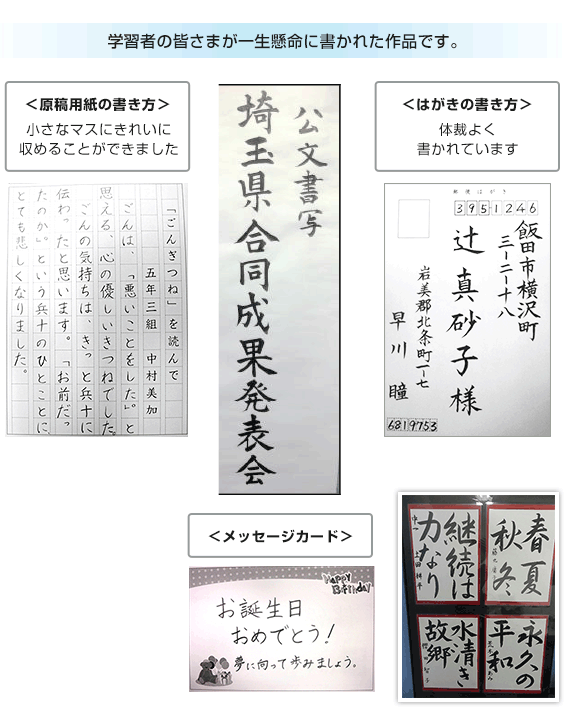 学習者の皆さまが一生懸命に書かれた作品です。
＜原稿用紙の書き方＞
小さなマスにきれいに
収めることができました
「ごんぎつね」を読んで
五年三組　中村美加
ごんは、「悪いことをした。」と
思える、心の優しいきつねでした。
ごんの気持ちは、きっと兵十に
伝わったと思います。「お前だっ
たのか。」という兵十のひとことに、
とても悲しくなりました。
公文書写
埼玉県合同成果発表会
＜はがきの書き方＞
体裁よく
書かれています
郵便はがき
3951246
飯田市横沢町
三ー二ー十八
辻真砂子様
岩美郡北条町一ー七
早川瞳
6819753
＜メッセージカード＞
Happy
Birthday
お誕生日
おめでとう！
夢に向って歩みましょう。
春夏
秋冬
継続は
力なり
永久の
平和
水清き
故郷